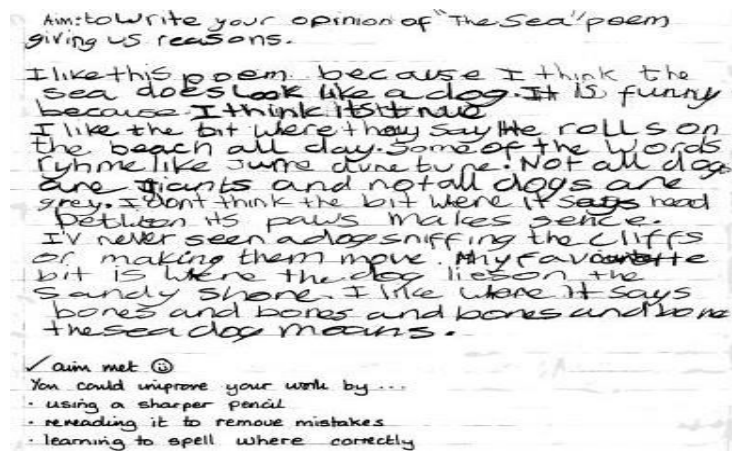 Aim: to Write your opinion of "The Sea" poem
giving us reasons.
I like this poem because I think the
sea does look like a dog. It is funny
because I think it's true
I like the bit were they say He rolls on
the beach all day. Some of the words
ryhme like June dune tune. Not all dogs
are giants and not all dogs are
grey. I dont think the bit were it says head
between its paws makes sence.
I'v never seen a dog sniffing the cliffs
or making them move. My favourite
bit is were the dog lies on the
Sandy shore. I like were it says
bones and bones and bones and bone
the sea dog moans.
✓ aim met ☺
You could improve your work by ...
· using a sharper pencil
· rereading it to remove mistakes
· learning to spell where correctly